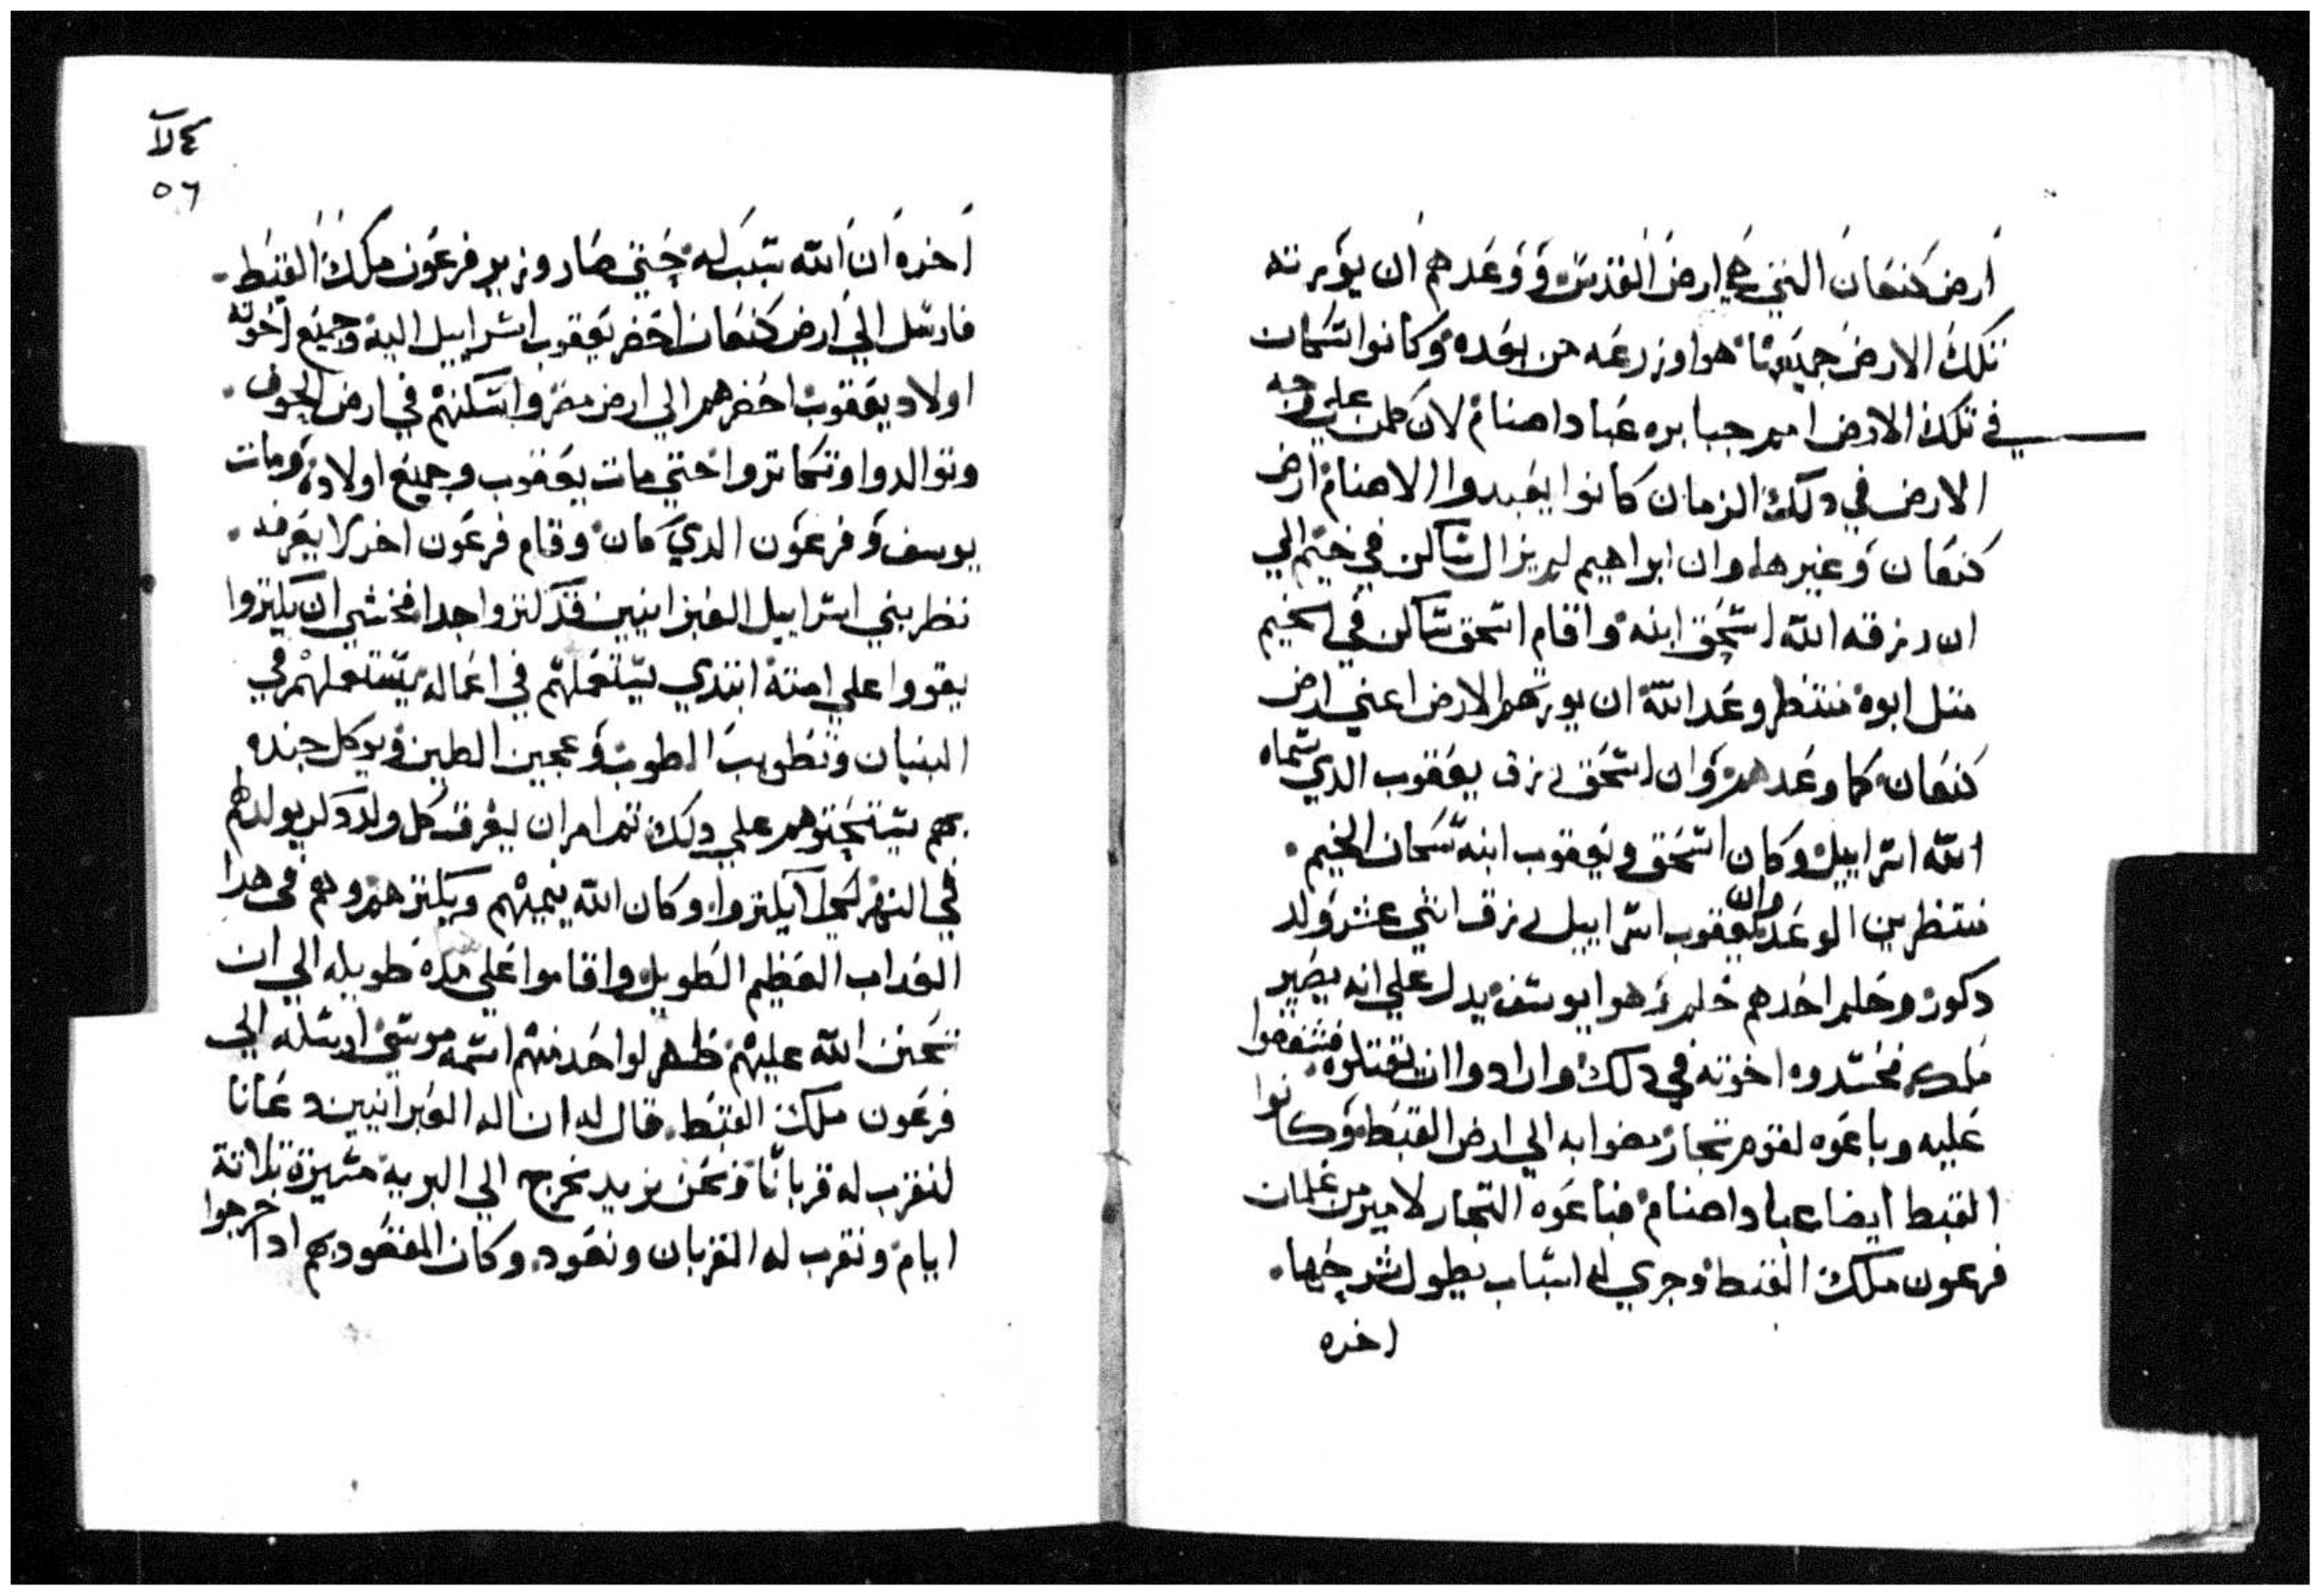 ارض كنعان التي هي ارض القدس ووعدهم ان يورته
تلك الارض جميعها هوا وزرعه من بعده وكانوا سكان
في تلك الارض امم جبابره عباد اصنام لان كلمن علي وجه
الارض في دلك الزمان كانوا يعبدوا الاصنام ارض
كنعان وغيرها وان ابراهيم لم يزال ساكن في خيم الي
ان رزقه الله اسحق ابنه واقام اسحق ساكن في الخيم
متل ابوه منتظر وعد الله ان يورتهم الارض اعني ارض
كنعان كما وعدهم وان اسحق رزق يعقوب الدي سماه
الله اسراييل وكان اسحق ويعقوب ابنه سكان الخيم
منتظرين الوعد وان يعقوب اسراييل رزق اتني عشر ولد
دكور وحلم احدهم حلم وهوا يوسف يدل علي انه يصير
ملك فحسدوه اخوته في دلك وارادوا ان يقتلوه فشفقوا
عليه وباعوه لقوم تجار مضوا به الي ارض القبط وكانوا
القبط ايضا عباد اصنام فباعوه التجار لامير من غلمان
فرعون ملك القبط وجري له اسباب يطول شرحها
اخره
٥٦
اخره ان الله سبب له حتي صار وزير فرعون ملك القبط
فارسل الي ارض كنعان احضر يعقوب اسراييل اليه وجميع اخوته
اولاد يعقوب احضرهم الي ارض مصر واسكنهم في ارض الحوف
وتوالدوا وتكاتروا حتي مات يعقوب وجميع اولاده ومات
يوسف وفرعون الدي كان وقام فرعون اخر لا يعرفه
نظر بني اسراييل العبرانيين قد كتروا جدا فخشي ان يكتروا
يقووا علي امته ابتدي يستعملهم في اعماله يستعملهم في
البنيان وتطويب الطوب وعجين الطين ويوكل جنده
بهم يستحتوهم علي دلك تم امر ان يغرق كل ولد دكر يولد لهم
في النهر لكي لا يكتروا وكان الله ينميهم ويكترهم وهم في هدا
العداب العظيم الطويل واقاموا علي مده طويله الي ان
تحنن الله عليهم ظهر لواحد منهم اسمه موسي ارسله الي
فرعون ملك القبط قال له ان اله العبرانيين دعانا
لنقرب له قربانا ونحن نريد نخرج الي البرية مسيرة تلاتة
ايام ونقرب له القربان ونعود وكان المقصود بهم ادا خرجوا